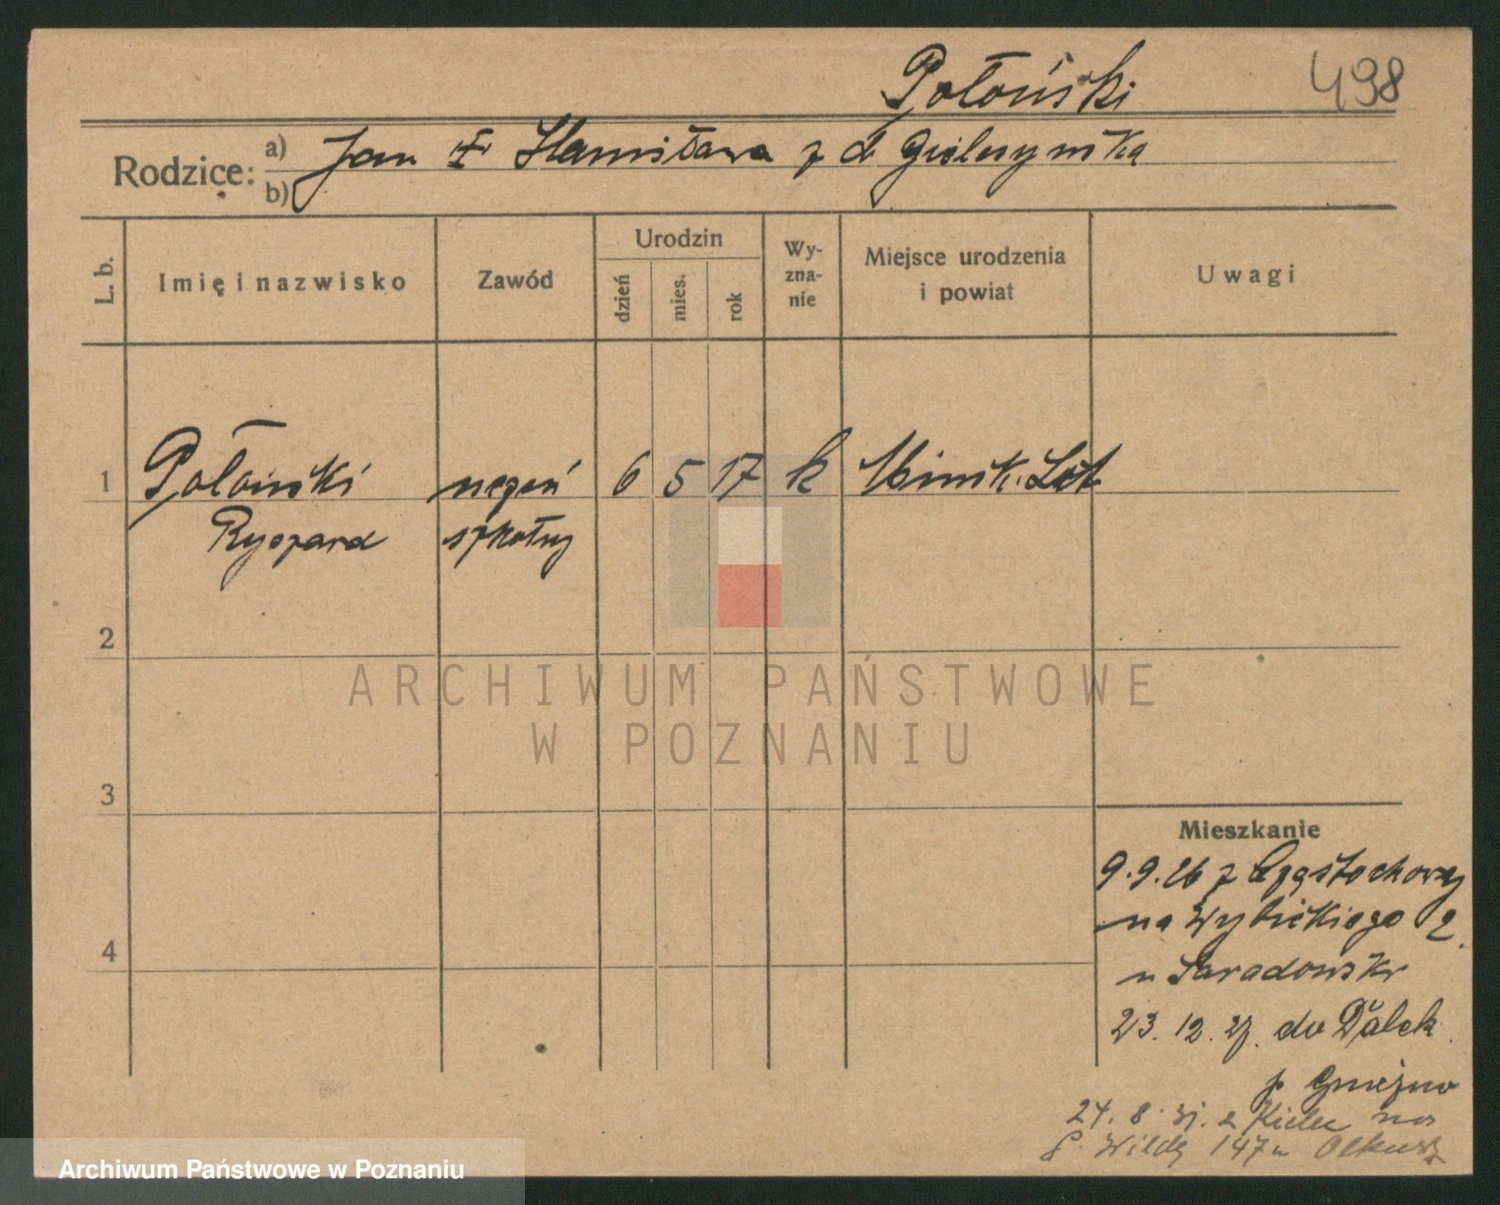 Połoński
498
Rodzice: a) Jan i Stanisława z d
b)
L. b.
Imię i nazwisko
Zawód
Urodzin
dzień
mies.
rok
Wy-
zna-
nie
Miejsce urodzenia
i powiat
Uwagi
1
Połoński
uczeń
6 5 17 k Mińsk. Lit
Ryszard
szkolny
2
ARCHIWUM PAŃSTWOWE
W POZNANIU
3
Mieszkanie
9.9.26 z Częstochowy
na Wybickiego 2
u
4
23. 12. 27. do Dalek
p Gniezno
24. 8. 31. z Kielc na
G. Wildę 147 u
Archiwum Państwowe w Poznaniu